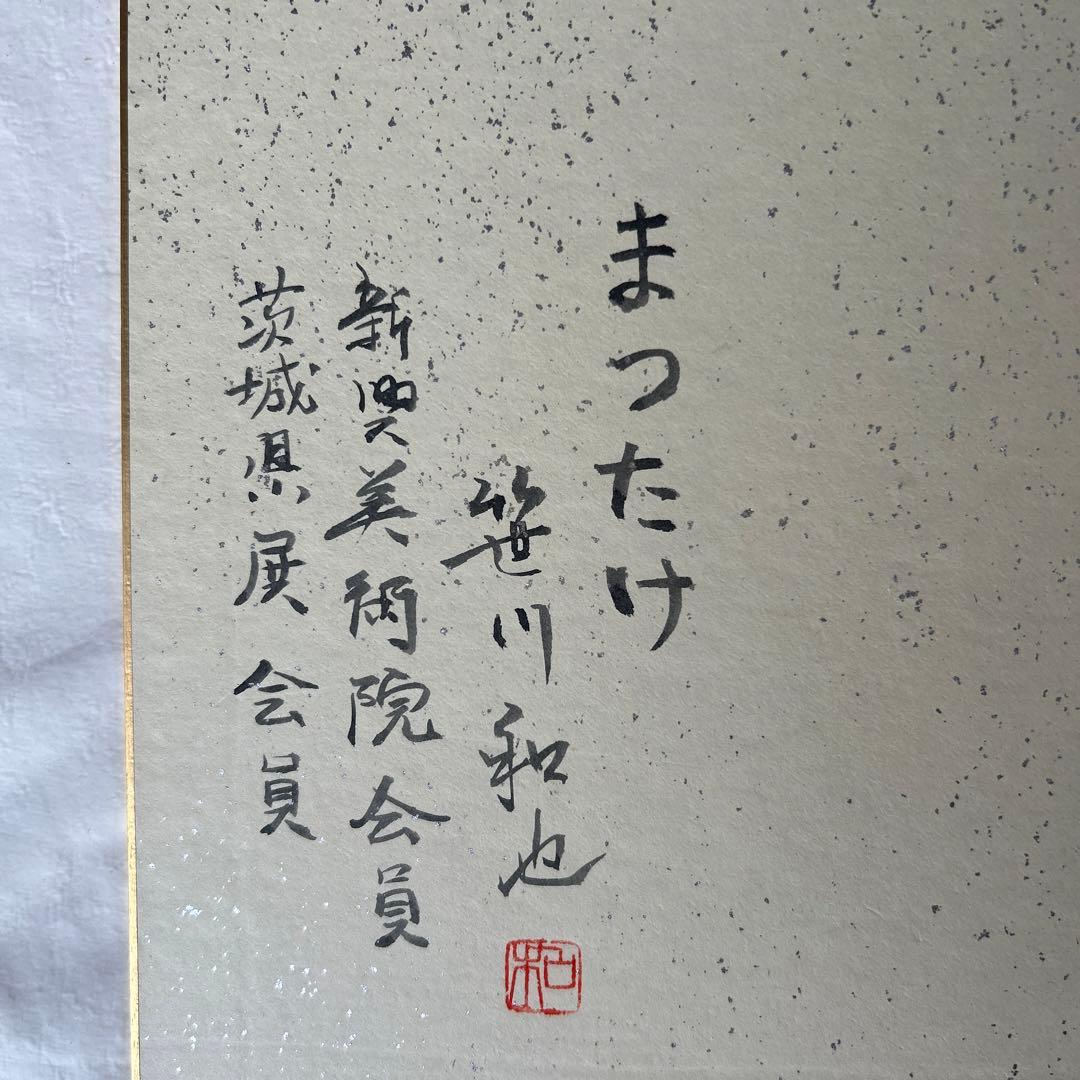 まつたけ
笹川和也
新興美術院会員
茨城県展会員
和